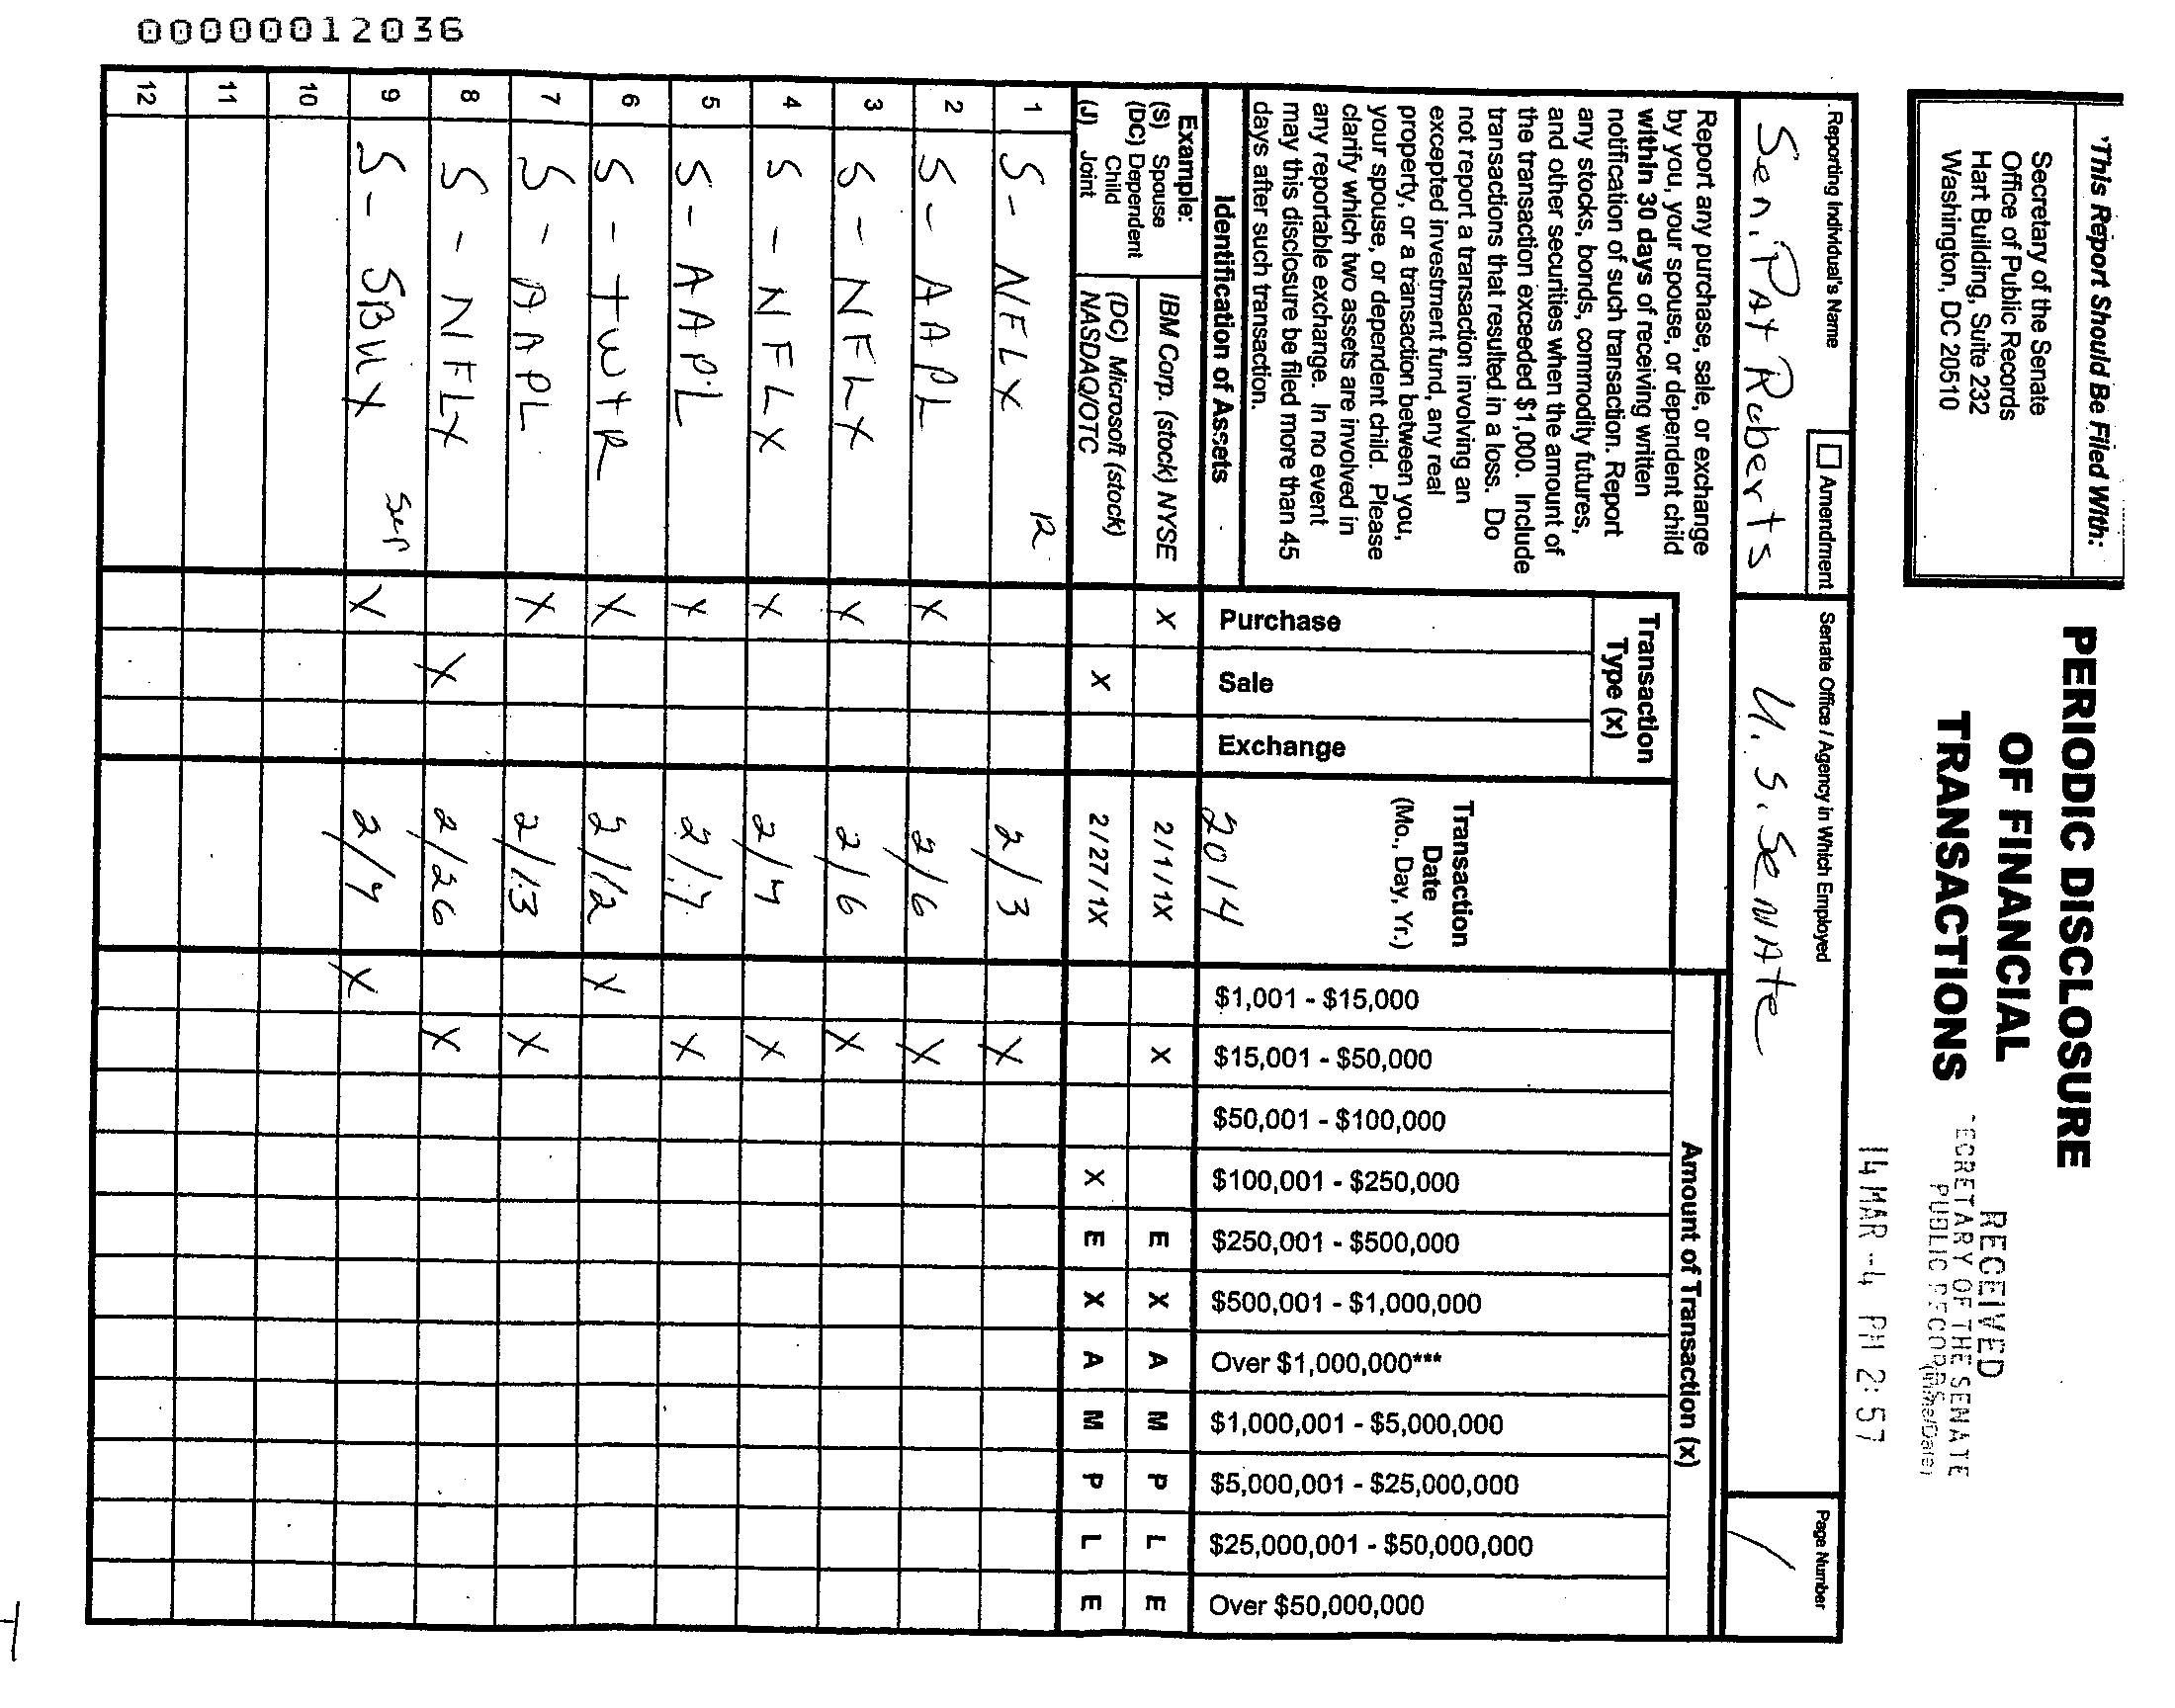 00000012036
'This Report Should Be Filed With:
Secretary of the Senate
Office of Public Records
Hart Building, Suite 232
Washington, DC 20510
PERIODIC DISCLOSURE
OF FINANCIAL
TRANSACTIONS
RECEIVED
ECRETARY OF THE SENATE
PUBLIC RECORDS
14 MAR -4 PM 2:57
Reporting Individual's Name
Amendment
Sen. Pat Roberts
Senate Office / Agency in Which Employed
U.S. Senate
Page Number
1
Report any purchase, sale, or exchange
by you, your spouse, or dependent child
within 30 days of receiving written
notification of such transaction. Report
any stocks, bonds, commodity futures,
and other securities when the amount of
the transaction exceeded $1,000. Include
transactions that resulted in a loss. Do
not report a transaction involving an
excepted investment fund, any real
property, or a transaction between you,
your spouse, or dependent child. Please
clarify which two assets are involved in
any reportable exchange. In no event
may this disclosure be filed more than 45
days after such transaction.
Identification of Assets
Transaction
Type (x)
Purchase
Sale
Exchange
Transaction
Date
(Mo., Day, Yr.)
2014
Amount of Transaction (x)
$1,001 - $15,000
$15,001 - $50,000
$50,001 - $100,000
$100,001 - $250,000
$250,001 - $500,000
$500,001 - $1,000,000
Over $1,000,000***
$1,000,001 - $5,000,000
$5,000,001 - $25,000,000
$25,000,001 - $50,000,000
Over $50,000,000
Example:
(S) Spouse
(DC) Dependent
Child
(J) Joint
IBM Corp. (stock) NYSE X 2/1/1X X E X A M P L E
(DC) Microsoft (stock)
NASDAQ/OTC X 2/27/1X X E X A M P L E
1 S - NFLX R 2/3 X
2 S - AAPL X 2/6 X
3 S - NFLX X 2/6 X
4 S - NFLX X 2/7 X
5 S - AAPL X 2/7 X
6 S - TWTR X 2/12 X
7 S - AAPL X 2/13 X
8 S - NFLX X 2/26 X
9 S - SBUX Sep X 2/7 X
10
11
12